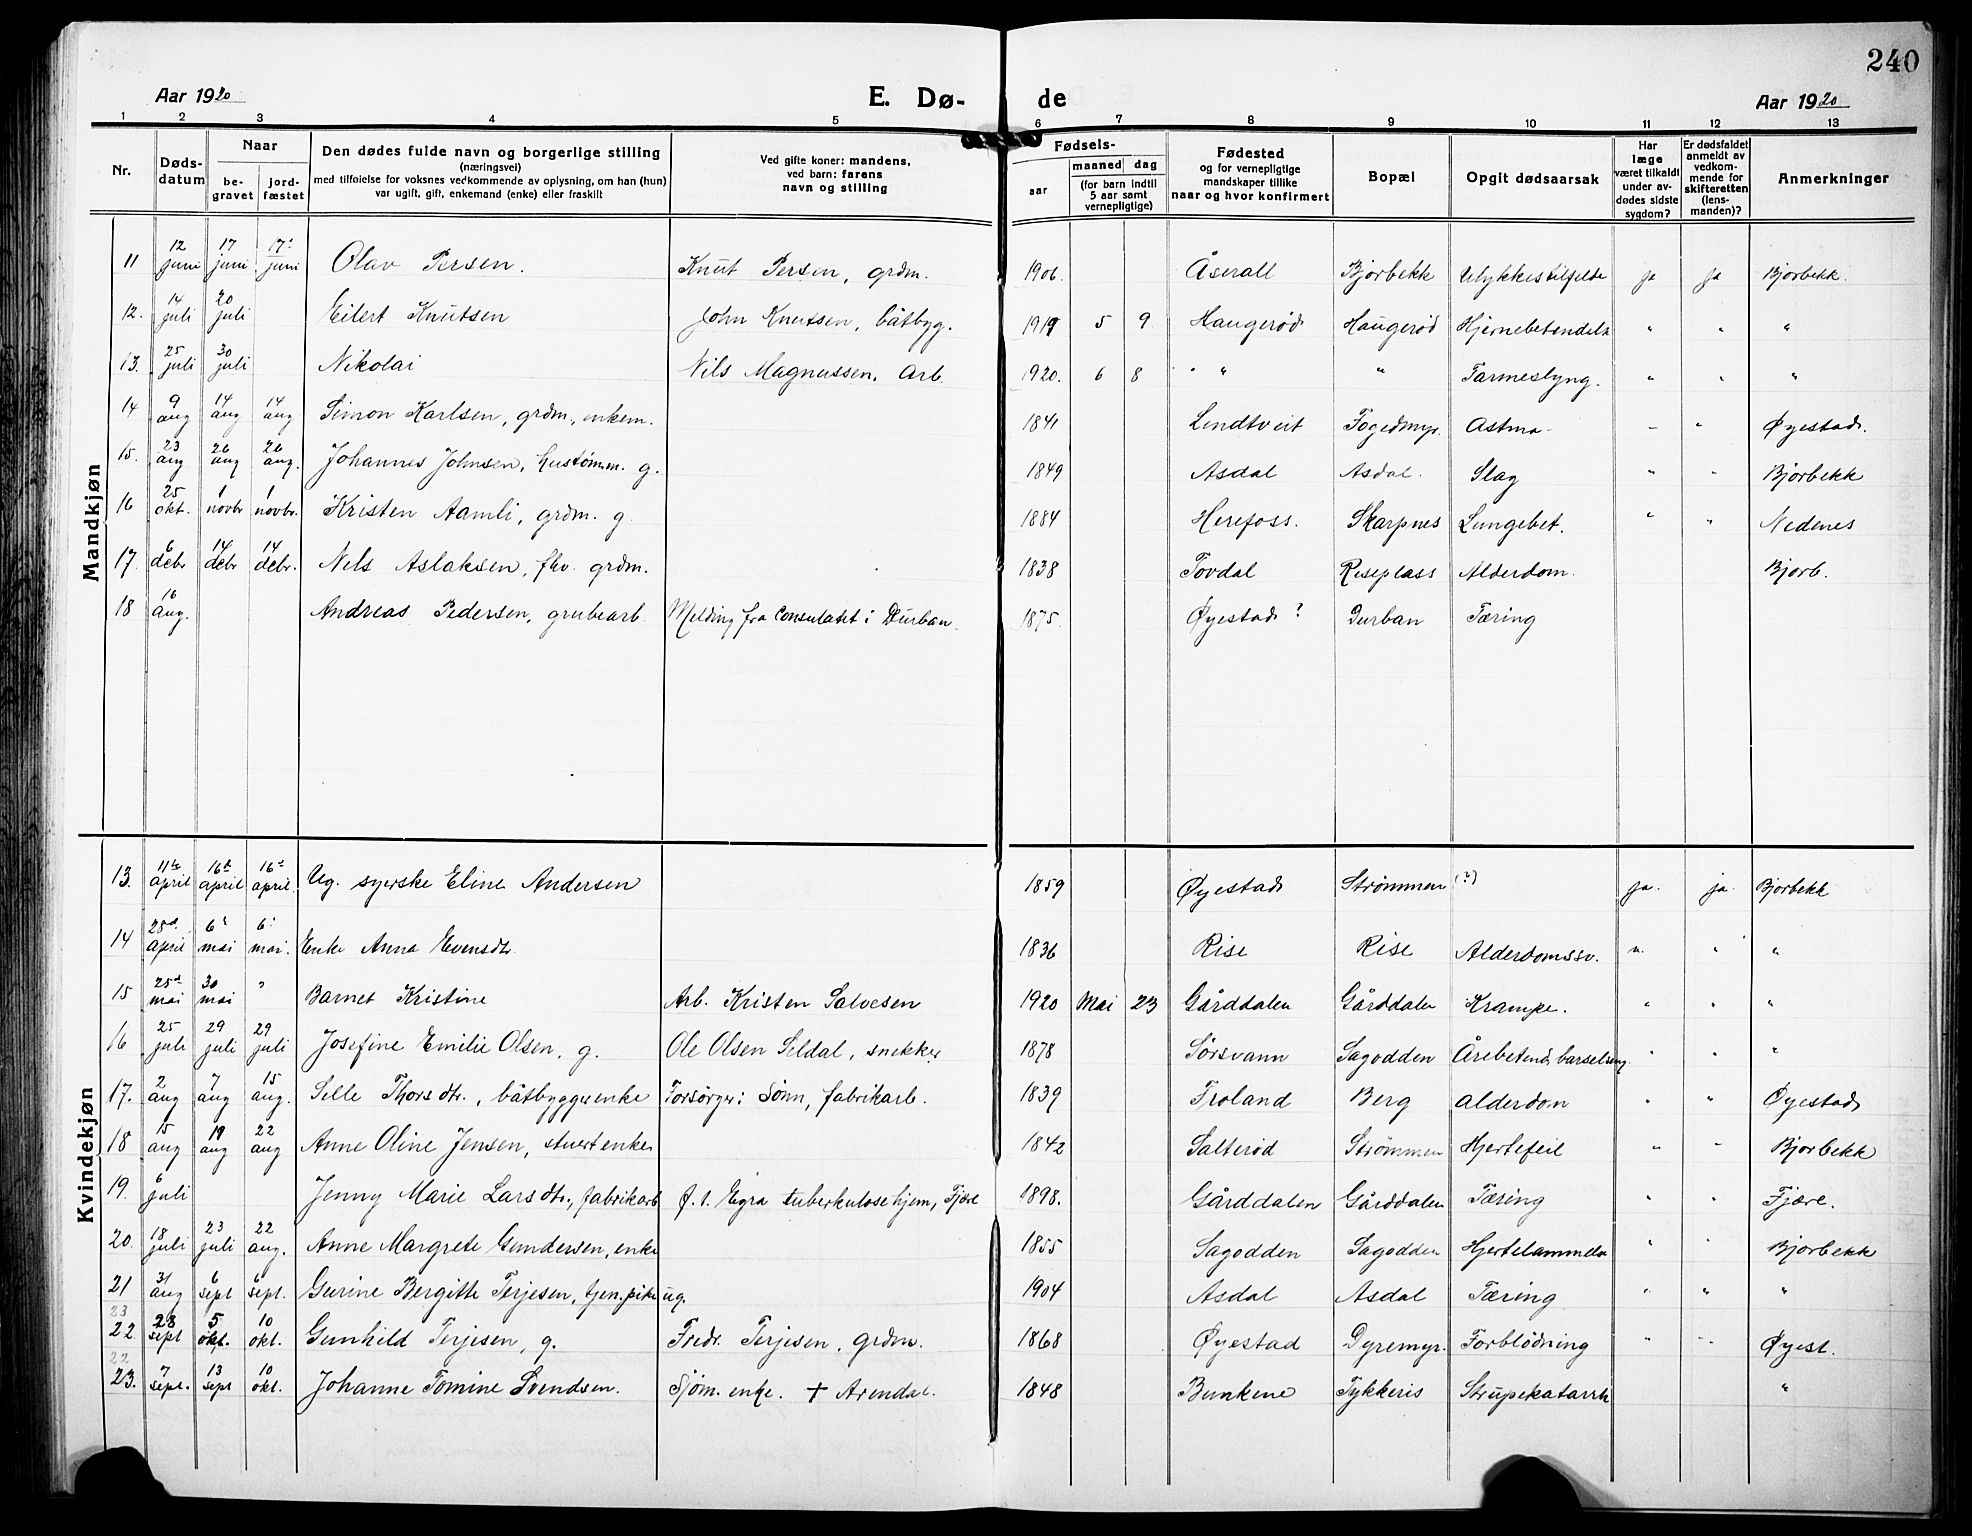 240
Aar 1920 E. Dø- de Aar 1920
1 2 3 4 5 6 7 8 9 10 11 12 13
Nr. Døds-datum Naar begravet jordfæstet Den dødes fulde navn og borgerlige stilling (næringsvei) med tilføielse for voksnes vedkommende av oplysning, om han (hun) var ugift, gift, enkemand (enke) eller fraskilt Ved gifte koner: mandens, ved barn: farens navn og stilling Fødsels- aar maaned dag (for barn indtil 5 aar samt vernepligtige) Fødested og for vernepligtige mandskaper tillike naar og hvor konfirmert Bopæl Opgit dødsaarsak Har læge været tilkaldt under avdødes sidste sygdom? Er dødsfaldet anmeldt av vedkommende for skifteretten (lensmanden)? Anmerkninger
Mandkjøn
11 12 juni 17 juni 17 juni Olav Persen. Knut Persen, grdm. 1906. Åserall Bjorbekk Ulykkestilfelde ja ja Bjorbekk.
12. 14 juli 20 juli Eilert Knutsen John Knutsen, båtbyg. 1919 5 9 Haugerød Haugerød Hjernebetendels " " "
13. 25 juli 30 juli Nikolai Nils Magnussen. Arb. 1920. 6 8 " " " Tarmeslyng. " " "
14 9 aug 14 aug 14 aug Simon Karlsen, grdm., enkem. 1841 Lindtveit Fogedmyr. Astma - - " Øyestad.
15. 23 aug 26 aug 26 aug. Johannes Johnsen, hustømm. g. 1849 Asdal Asdal. Slag " " Bjorbekk
16 25 okt. 1 novbr 1 novbr. Kristen Aamli, grdm. g. 1884 Herefoss. Skarpnes Lungebet. " " Nedenes
17. 6 debr 14 debr 14 debr. Nels Aslaksen, fhv. grdm. 1838 Tovdal Riseplass Alderdom. Bjorb.
18 16 aug. Andreas Pedersen, grubearb. Melding fra Consulatet i Durban. 1875. Øyestad? Durban Tæring
Kvindekjøn
13. 11te april 16de april 16de april. Ug. syerske Eline Andersen 1859 Øyestad Strømmen (?) ja. ja Bjorbekk
14 28de april 6te mai 6te mai. Enke Anna Evensdtr. 1836 Rise Rise Alderdomssv. n. " "
15 25de mai 30 mai " Barnet Kristine Arb. Kristen Salvesen 1920 Mai 23 Gårddalen Gårddalen Krampe. " " "
16 25 juli 29 juli 29 juli Josefine Emilie Olsen, g. Ole Olsen Seldal, snekker 1878 Sørsvann Sagodden Årebetend. barselseng " " "
17. 2 aug 7 aug 15 aug. Sille Thorsdtr., båtbyggerenke Forsørger: Sønn, fabrikarb. 1839 Froland Berg Alderdom " " Øyestad
18 15 aug 19 aug 22 aug Anne Oline Jensen, stuertenke 1842 Salterød Strømmen Hjertefeil " " Bjorbekk
19. 6 juli Jenny Marie Larsdtr., fabrikarb f. t. Egra tuberkulosehjem, Fjære 1898. Gårddalen Gårddalen Tæring " " Fjære.
20. 18 juli 23 juli 22 aug. Anne Margrete Gundersen, enke 1855 Sagodden Sagodden Hjertelammelse " " Bjorbekk
21 31 aug 6 sept 6 sept. Gurine Bergitte Terjesen, tjen.pike ug. 1904 Asdal Asdal Tæring " " "
23 22. 28 sept 5 okt. 10 okt. Gunhild Terjesen, g. Fredr. Terjesen, grdm. 1868 Øyestad Dyremyr. Forblødning " " Øyest.
22 23. 7 sept. 13 sept 10 okt. Johanne Tomine Svendsen. Sjøm. enke. + Arendal. 1848 Bunkene Tykkeris Strupekatarrh "